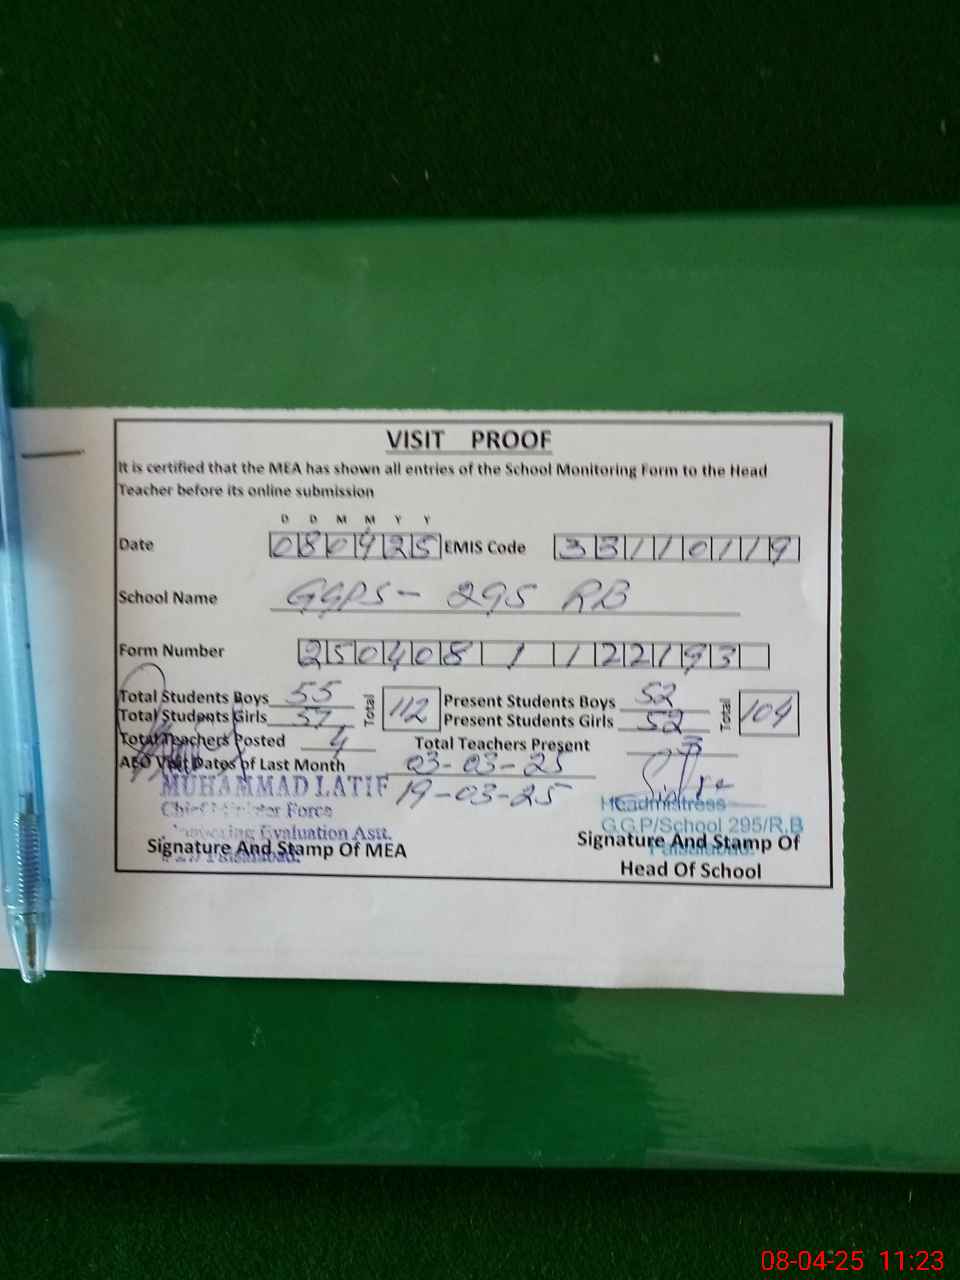 VISIT PROOF
It is certified that the MEA has shown all entries of the School Monitoring Form to the Head
Teacher before its online submission
D D M M Y Y
Date 080425 EMIS Code 33110119
School Name GGPS - 295 RB
Form Number 250408 1 122193
Total Students Boys 55 Total 112 Present Students Boys 52 Total 104
Total Students Girls 57 Present Students Girls 52
Total Teachers Posted 4 Total Teachers Present 3
AEO Visit Dates of Last Month 03-03-25
19-03-25
MUHAMMAD LATIF
Chief Minister Force
Monitoring Evaluation Astt.
Faisalabad.
Signature And Stamp Of MEA
Headmistress
G.G.P/School 295/R.B
Faisalabad.
Signature And Stamp Of
Head Of School
08-04-25 11:23